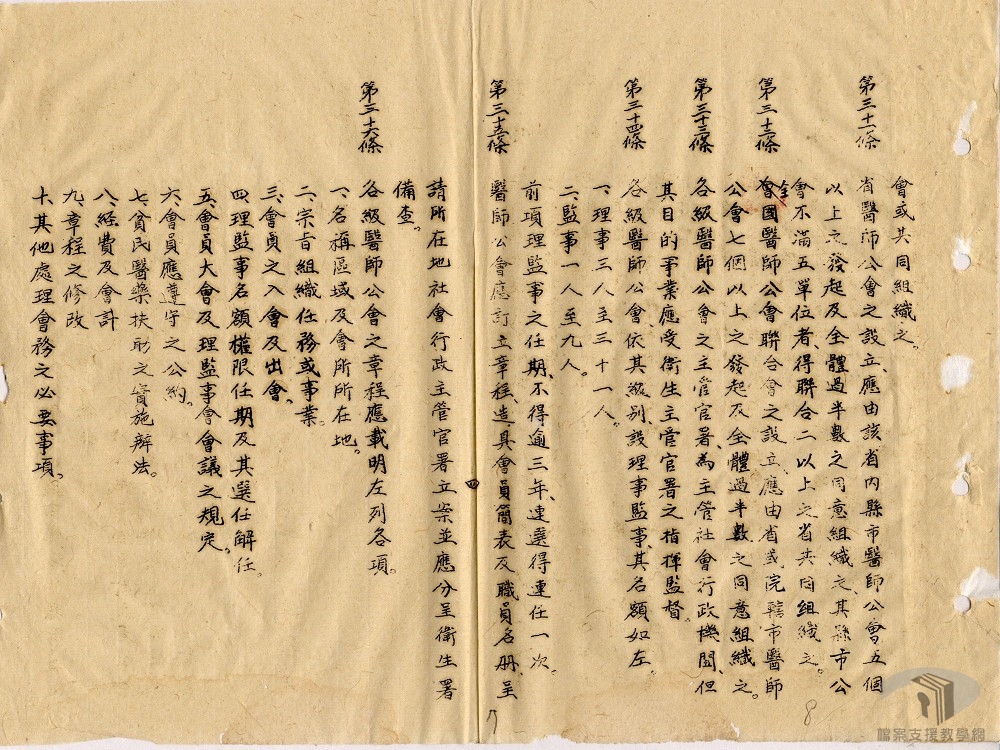 會或其同組織之。
第三十一條
省醫師公會之設立、應由該省內縣市醫師公會五個
以上之發起及全體過半數之同意組織之、其縣市公
會不滿五單位者、得聯合二以上之省共同組織之。
第三十二條
全國醫師公會聯合會之設立、應由省或院轄市醫師
公會七個以上之發起及全體過半數之同意組織之。
第三十三條
各級醫師公會之主管官署、為主管社會行政機關、但
其目的事業、應受衛生主管官署之指揮監督。
第三十四條
各級醫師公會、依其級別、設理事監事、其名額如左
一、理事三人主三十一人。
二、監事一人至九人。
前項理監事之任期、不得逾三年、連選得連任一次。
第三十五條
醫師公會應訂立章程、造具會員簡表及職員名册、呈
請所在地社會行政主管官署立案並應分呈衛生署
備查。
第三十六條
各級醫師公會之章程應載明左列各項。
一、名稱區域及會所所在地。
二、宗旨組織任務或事業。
三、會員之入會及出會、
四、理監事名額權限任期及其選任解任。
五、會員大會及理監事會會議之規定。
六、會員應遵守之公約。
七、貧民醫藥扶助之實施辦法。
八、經費及會計
九、章程之修改
十、其他處理會務之必要事項。
四
7
8
檔案支援教學網